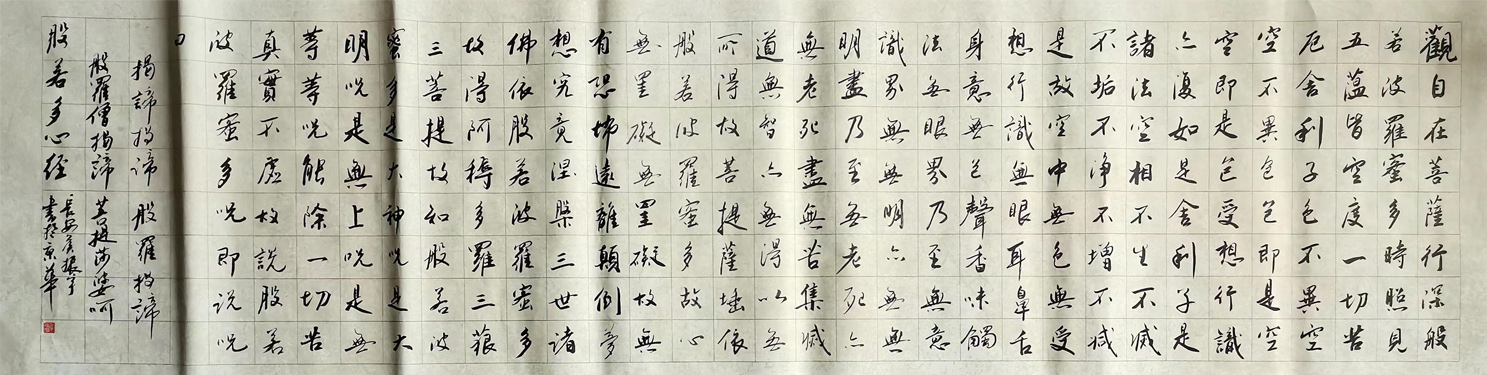 觀自在菩薩行深般
若波羅蜜多時照見
五蘊皆空度一切苦
厄舍利子色不異空
空不異色色即是空
空即是色受想行識
亦復如是舍利子是
諸法空相不生不滅
不垢不净不增不減
是故空中無色無受
想行識無眼耳鼻舌
身意無色聲香味觸
法無眼界乃至無意
識界無無明亦無無
明盡乃至無老死亦
無老死盡無苦集滅
道無智亦無得以無
所得故菩提薩埵依
般若波羅蜜多故心
無罣礙無罣礙故無
有恐怖遠離顛倒夢
想究竟涅槃三世諸
佛依般若波羅蜜多
故得阿耨多羅三藐
三菩提故知般若波
蜜多是大神咒是大
明咒是無上咒是無
等等咒能除一切苦
真實不虛故説般若
波羅蜜多咒即说咒
曰
揭諦揭諦 般羅揭諦
般羅僧揭諦 菩提莎婆呵
般若多心經
長安 振宇
書於京華